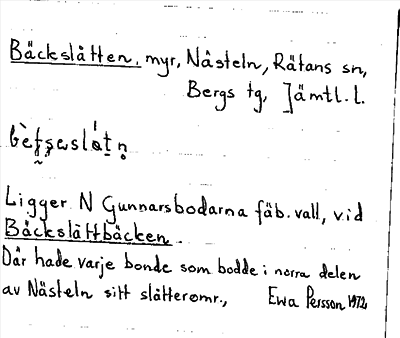 Bäckslåtten, myr, Nästeln, Rätans sn,
Bergs tg, Jämtl. l.
Ligger N Gunnarsbodarna fäb. vall, vid
Bäckslåttbäcken.
Där hade varje bonde som bodde i norra delen
av Nästeln sitt slåtteromr., Ewa Persson 1972